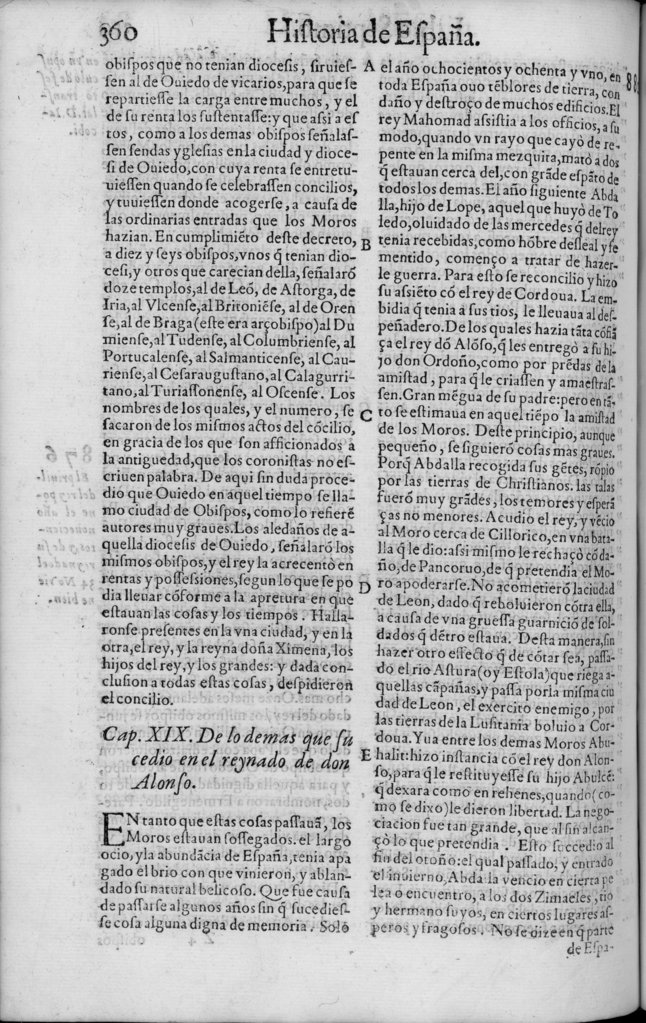 360
Historia de España.
obispos que no tenian diocesis, siruies-
sen al de Ouiedo de vicarios,para que se
repartiesse la carga entre muchos, y el
de su renta los sustentasse:y que assi a es
tos, como a los demas obispos señalas-
sen sendas yglesias en la ciudad y dioce-
si de Ouiedo,con cuya renta se entretu-
uiessen quando se celebrassen concilios,
y tuuiessen donde acogerse, a causa de
las ordinarias entradas que los Moros
hazian. En cumplimiẽto deste decreto,
a diez y seys obispos,vnos q̃ tenian dio-
cesi,y otros que carecian della, señalarõ
doze templos,al de Leõ, de Astorga, de
Iria,al Vlcense,al Britoniẽse, al de Oren
se,al de Braga(este era arçobispo)al Du
miense,al Tudense, al Columbriense, al
Portucalense, al Salmanticense, al Cau-
riense,al Cesaraugustano,al Calagurri-
tano,al Turiassonense, al Oscense. Los
nombres de los quales, y el numero, se
sacaron de los mismos actos del cõcilio,
en gracia de los que son afficionados a
la antiguedad,que los coronistas no es-
criuen palabra. De aqui sin duda proce-
dio que Ouiedo en aquel tiempo se lla-
mo ciudad de Obispos, como lo refierẽ
autores muy graues.Los aledaños de a-
quella diocesis de Ouiedo, señalarõ los
mismos obispos,y el rey la acrecentò en
rentas y possessiones,segun lo que se po
dia lleuar cõforme a la apretura en que
estauan las cosas y los tiempos. Halla-
ronse presentes en la vna ciudad, y en la
otra,el rey, y la reyna doña Ximena, los
hijos del rey,y los grandes: y dada con-
clusion a todas estas cosas, despidieron
el concilio.
Cap. XIX. De lo demas que su
cedio en el reynado de don
Alonso.
EN tanto que estas cosas passauã, los
Moros estauan sossegados. el largo
ocio, y la abundãcia de España,tenia apa
gado el brio con que vinieron, y ablan-
dado su natural belicoso. Que fue causa
de passarse algunos años sin q̃ sucedies-
se cosa alguna digna de memoria. Solo
A
B
C
D
E
el año ochocientos y ochenta y vno, en
toda España ouo tẽblores de tierra, con
daño y destroço de muchos edificios.El
rey Mahomad assistia a los officios, a su
modo,quando vn rayo que cayò de re-
pente en la misma mezquita,matò a dos
q̃ estauan cerca del,con grãde espãto de
todos los demas.El año siguiente Abda
lla,hijo de Lope, aquel que huyò de To
ledo,oluidado de las mercedes q̃ del rey
tenia recebidas,como hõbre desleal y fe
mentido, començo a tratar de hazer-
le guerra. Para esto se reconcilio y hizo
su assiẽto cõ el rey de Cordoua. La em-
bidia q̃ tenia a sus tios, le lleuaua al des-
peñadero.De los quales hazia tãta cõfiã
ça el rey dõ Alõso,q̃ les entregò a su hi-
jo don Ordoño,como por prẽdas de la
amistad, para q̃ le criassen y amaestras-
sen.Gran mẽgua de su padre:pero en tã-
to se estimaua en aquel tiẽpo la amistad
de los Moros. Deste principio, aunque
pequeño, se siguierõ cosas mas graues.
Porq̃ Abdalla recogida sus gẽtes, rõpio
por las tierras de Christianos. las talas
fuerõ muy grãdes, los temores y esperã
ças no menores. Acudio el rey, y vẽcio
al Moro cerca de Cillorico,en vna bata-
lla q̃ le dio:assi mismo le rechaçò cõ da-
ño,de Pancoruo,de q̃ pretendia el Mo-
ro apoderarse.No acometierõ la ciudad
de Leon, dado q̃ reboluieron cõtra ella,
a causa de vna gruessa guarniciõ de sol-
dados q̃ dẽtro estaua. Desta manera,sin
hazer otro effecto q̃ de cõtar sea, passa-
do el rio Astura(oy Estola)que riega a-
quellas cãpañas,y passa por la misma ciu
dad de Leon, el exercito enemigo, por
las tierras de la Lusitania boluio a Cor-
doua.Yua entre los demas Moros Abu-
halit:hizo instancia cõ el rey don Alon-
so,para q̃ le restituyesse su hijo Abulcẽ:
q̃ dexara como en rehenes,quando(co-
mo se dixo)le dieron libertad. La nego-
ciacion fue tan grande, que al fin alcan-
çò lo que pretendia. Esto succedio al
fin del otoño:el qual passado, y entrado
el inuierno, Abdalla vencio en cierta pe
lea o encuentro, a los dos Zimaeles, tio
y hermano suyos, en ciertos lugares as-
peros y fragosos. No se dize en q̃ parte
de Espa-